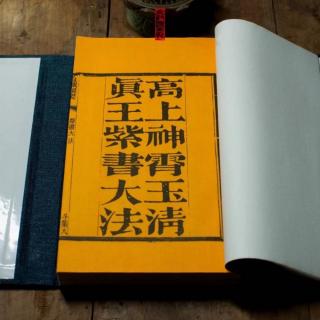 高上神霄玉清
真王紫書大法